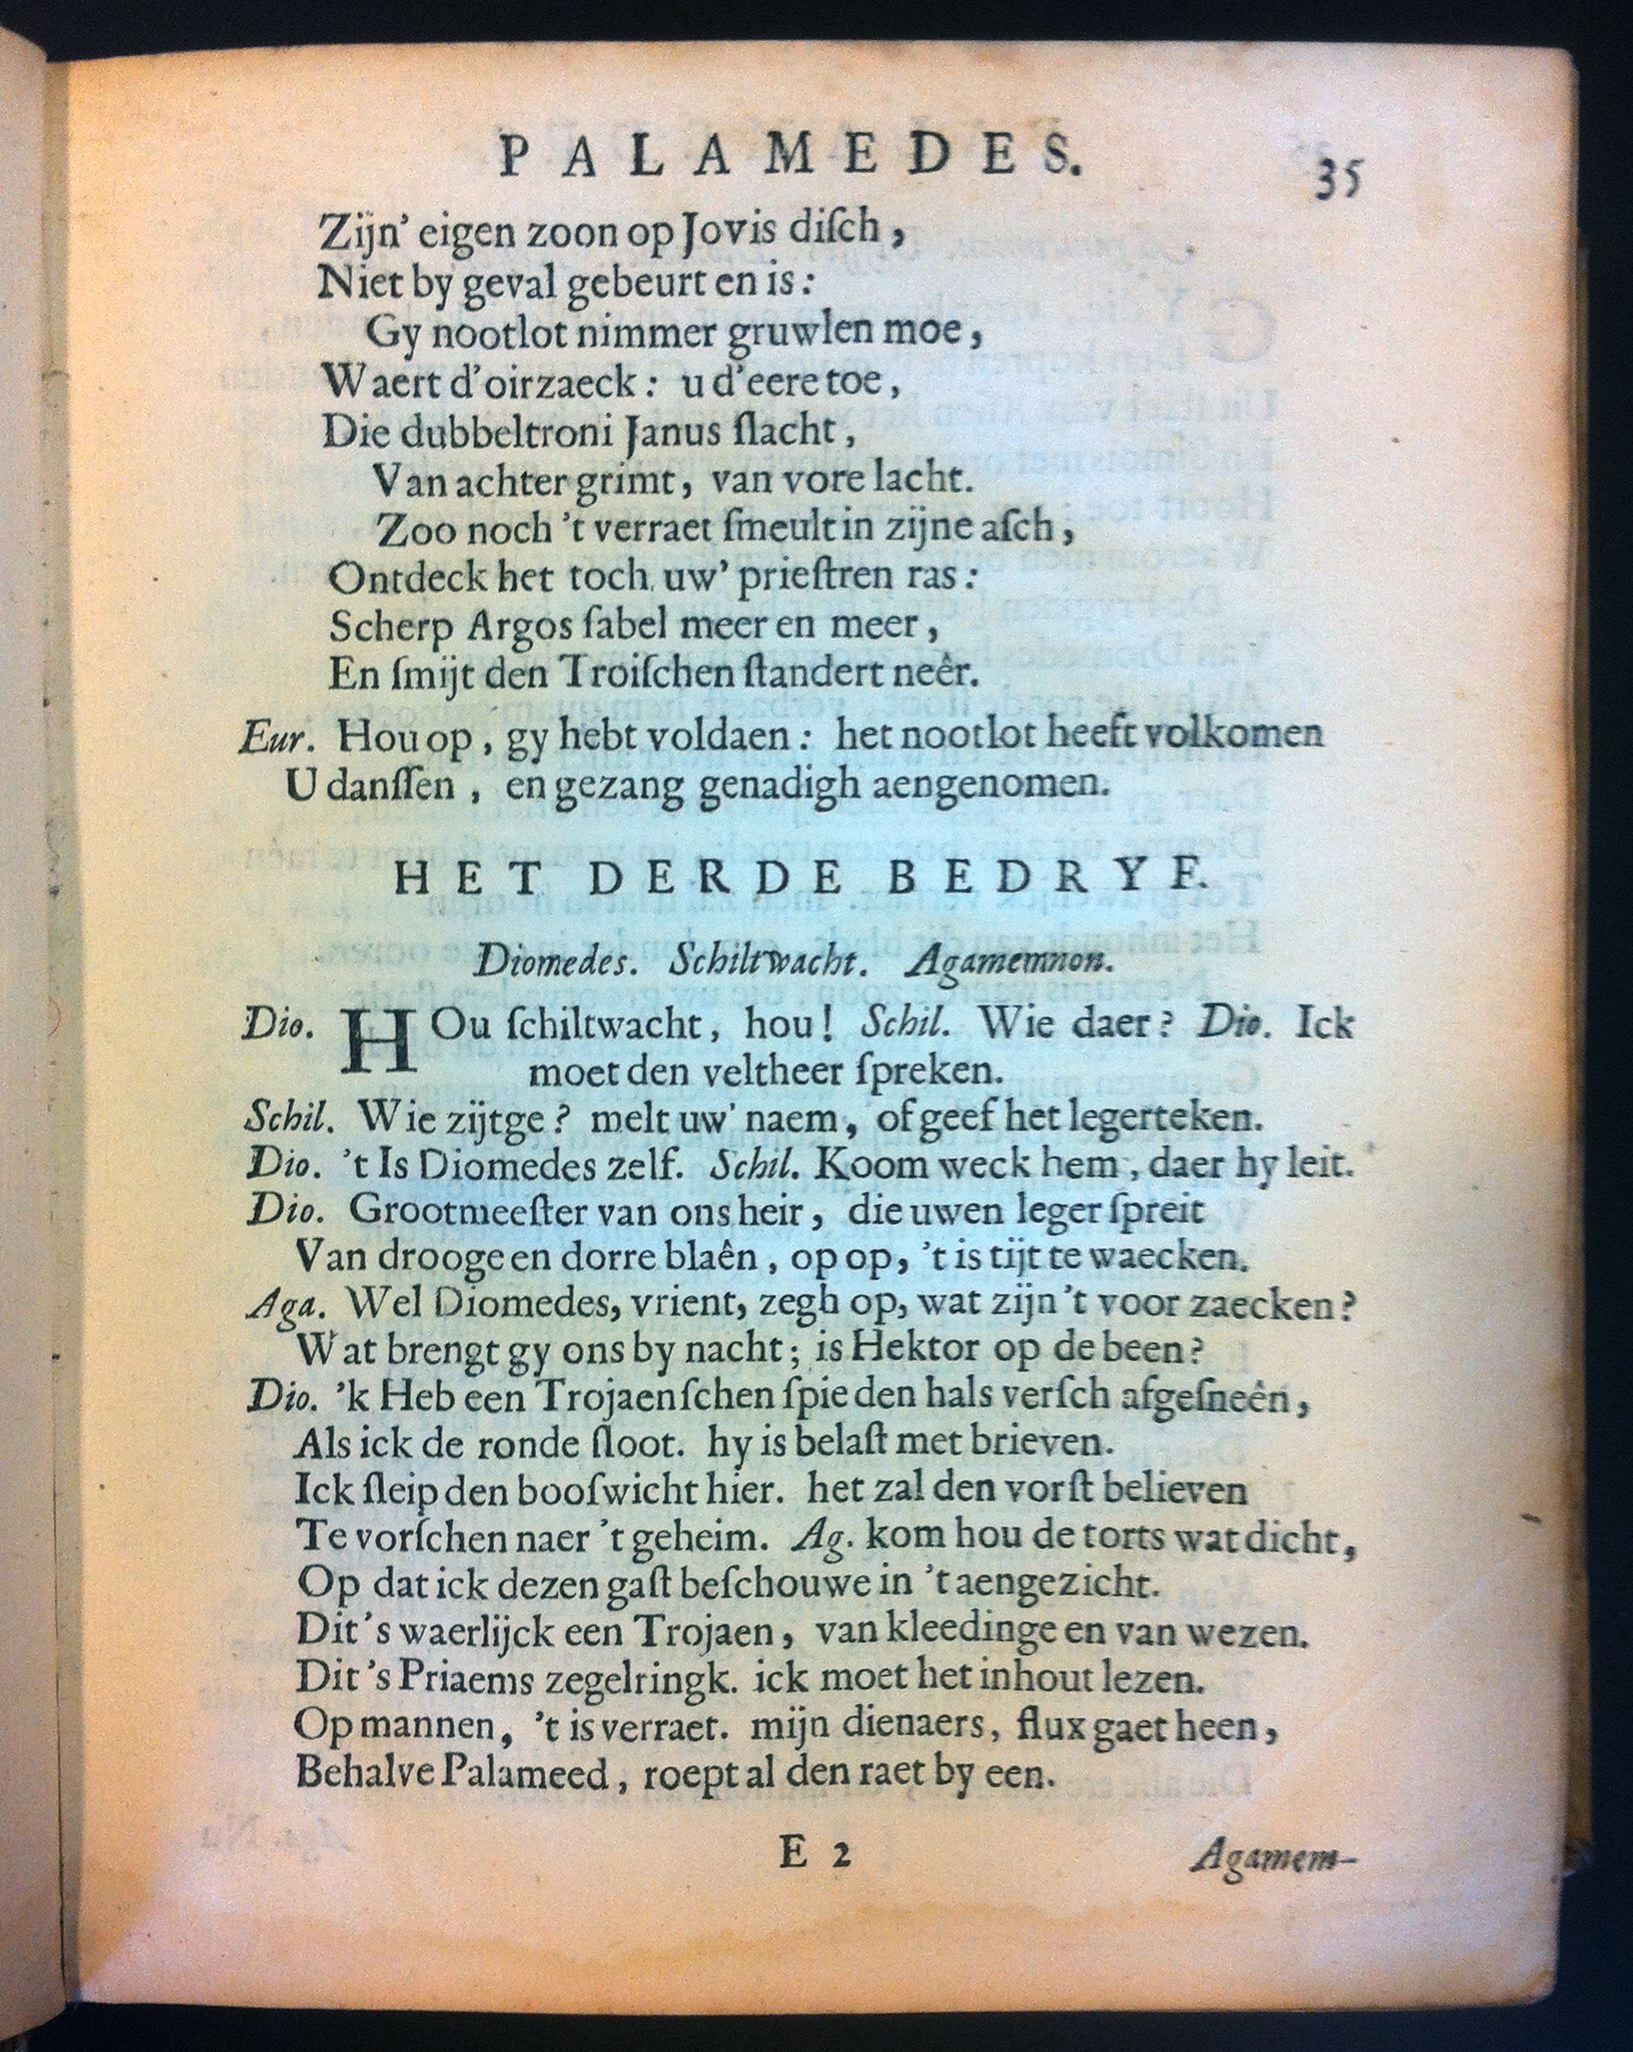 PALAMEDES. 35
Zijn' eigen zoon op Jovis diſch,
Niet by geval gebeurt en is:
Gy nootlot nimmer gruwlen moe,
Waert d'oirzaeck: u d'eere toe,
Die dubbeltroni Janus ſlacht,
Van achter grimt, van vore lacht.
Zoo noch 't verraet ſmeult in zijne aſch,
Ontdeck het toch uw' prieſtren ras:
Scherp Argos ſabel meer en meer,
En ſmijt den Troiſchen ſtandert neêr.
Eur. Hou op, gy hebt voldaen: het nootlot heeft volkomen
U danſſen, en gezang genadigh aengenomen.
HET DERDE BEDRYF.
Diomedes. Schiltwacht. Agamemnon.
Dio. HOu ſchiltwacht, hou! Schil. Wie daer? Dio. Ick
moet den veltheer ſpreken.
Schil. Wie zijtge? melt uw' naem, of geef het legerteken.
Dio. 't Is Diomedes zelf. Schil. Koom weck hem, daer hy leit.
Dio. Grootmeeſter van ons heir, die uwen leger ſpreit
Van drooge en dorre blaên, op op, 't is tijt te waecken.
Aga. Wel Diomedes, vrient, zegh op, wat zijn 't voor zaecken?
Wat brengt gy ons by nacht; is Hektor op de been?
Dio. 'k Heb een Trojaenſchen ſpie den hals verſch afgeſneên,
Als ick de ronde ſloot. hy is belaſt met brieven.
Ick ſleip den booſwicht hier. het zal den vorſt believen
Te vorſchen naer 't geheim. Ag. kom hou de torts wat dicht,
Op dat ick dezen gaſt beſchouwe in 't aengezicht.
Dit's waerlijck een Trojaen, van kleedinge en van wezen.
Dit's Priaems zegelringk. ick moet het inhout lezen.
Op mannen, 't is verraet. mijn dienaers, flux gaet heen,
Behalve Palameed, roept al den raet by een.
E 2 Agamem-